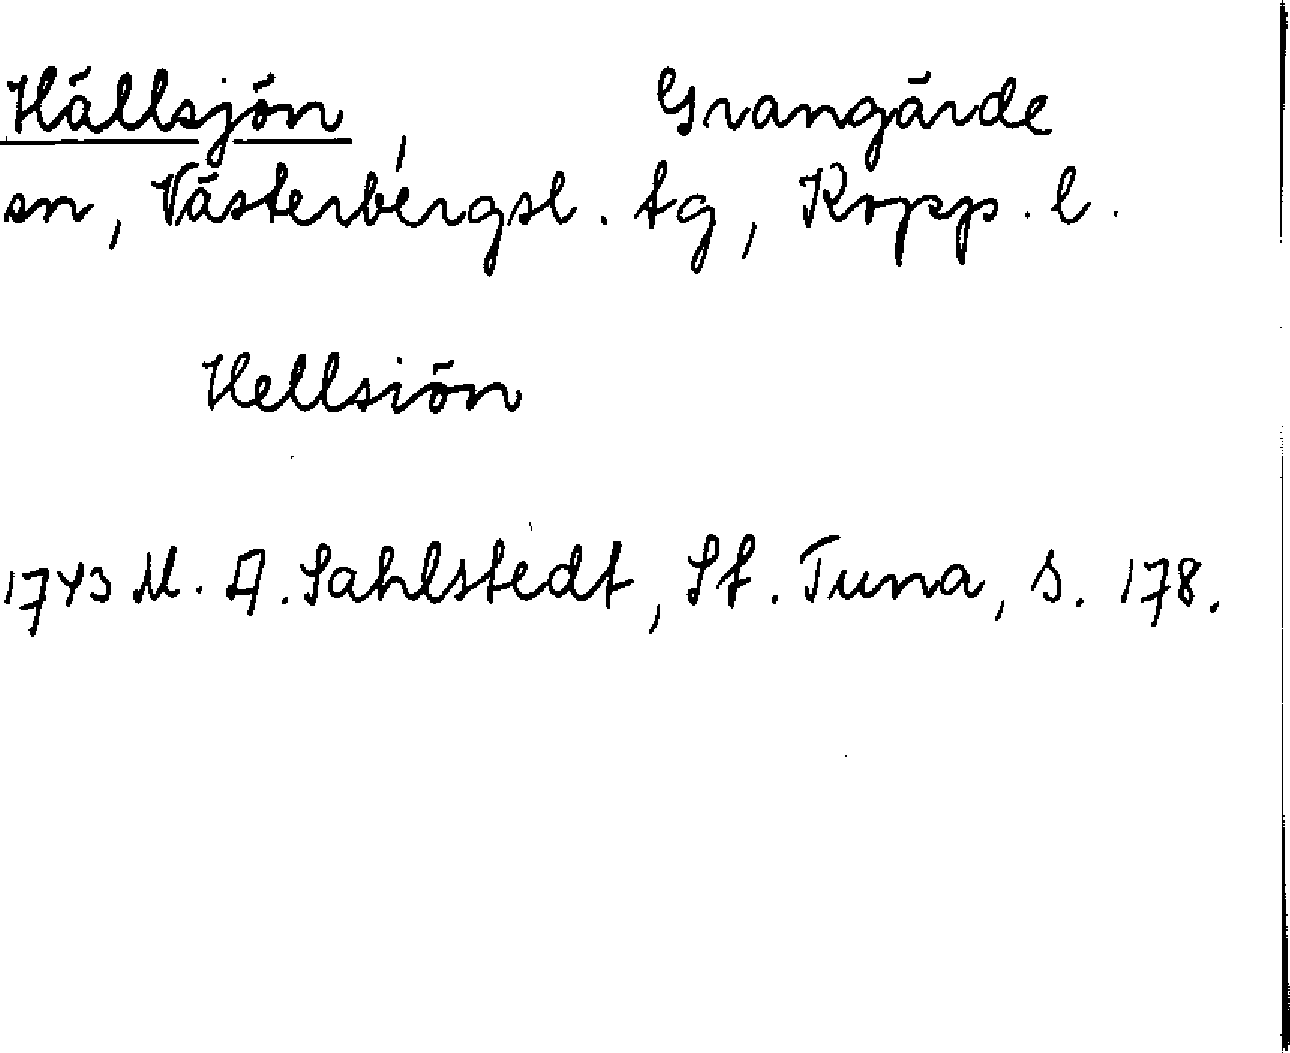 Hällsjön, Grangärde
sn, Västerbergsl. tg, Kopp. l.
Hellsiön
1743 M. A. Sahlstedt, St. Tuna, s. 178.